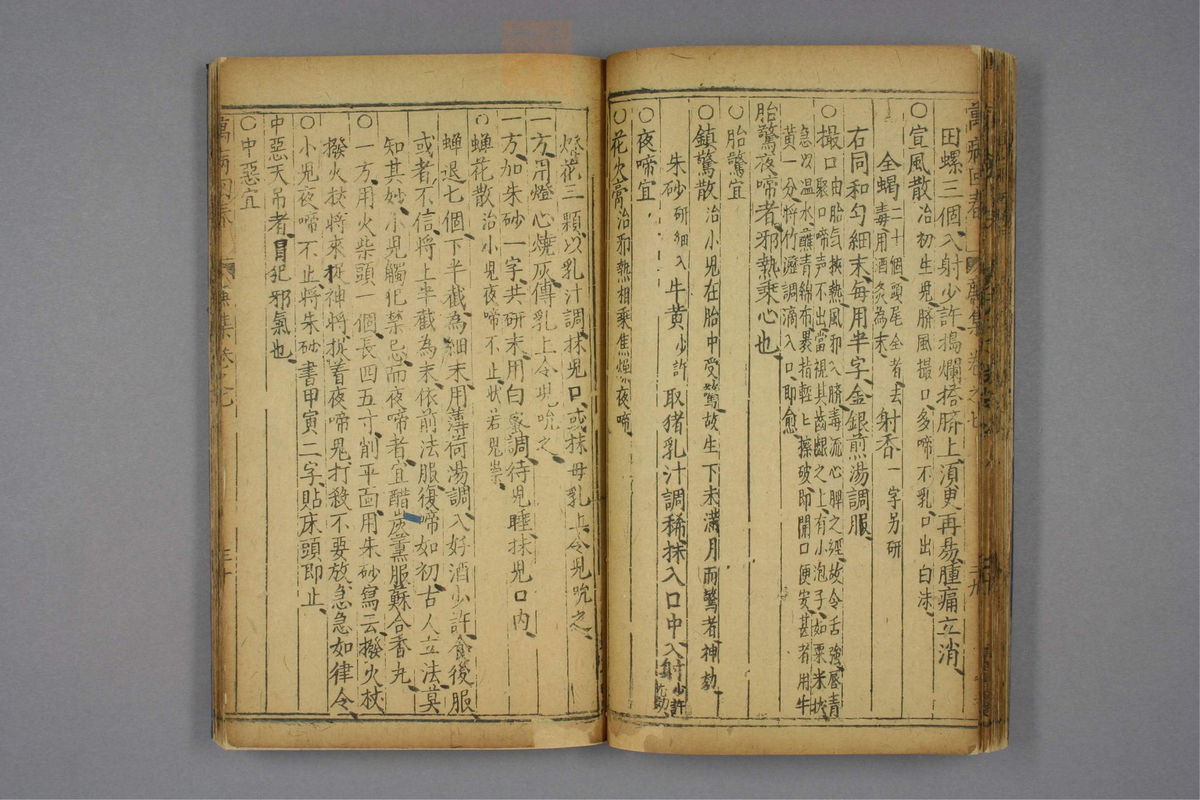 田螺三個入射少許搗爛搭臍上湏更再易腫痛立消
○宣風散治初生児臍風撮口多啼不乳口出白沫
全蝎二十個頭尾全者去毒用酒炙為末 射香一字另研
右同和勻細末每用半字金銀煎湯調服
○撮口由胎氣挾熱風邪入臍毒流心脾之經故令舌強唇青
聚口啼声不出當視其齒齦之上有小泡子如粟米狀
急以温水蘸青綿布裹指輕匕擦破即開口便安甚者用牛
黄一分將竹瀝調滴入口即愈
胎驚夜啼者邪熱乗心也
○胎驚宜
○鎮驚散治小児在胎中受驚故生下未満月而驚者神効
朱砂研細入牛黄少許取猪乳汁調稀抹入口中入射少許尤効
○夜啼宜
○花火膏治邪熱相乗焦燥夜啼
燈花三顆以乳汁調抹児口或抹母乳上令児吮之
一方用燈心燒灰傅乳上令児吮之
一方加朱砂一字共研末用白蜜調待児睡抹児口内
○蟬花散治小児夜啼不止狀若見祟
蟬退七個下半截為細末用薄荷湯調入好酒少許食後服
或者不信將上半截為末依前法服復啼如初古人立法莫
知其妙小児觸犯禁忌而夜啼者宜醋炭薰服蘇合香丸
○一方用火柴頭一個長四五寸削平面用朱砂寫云撥火杖
撥火杖將來捉神將捉着夜啼鬼打殺不要放急急如律令
○小児夜啼不止將朱砂書甲寅二字貼床頭即止
中惡天吊者冒犯邪氣也
○中惡宜